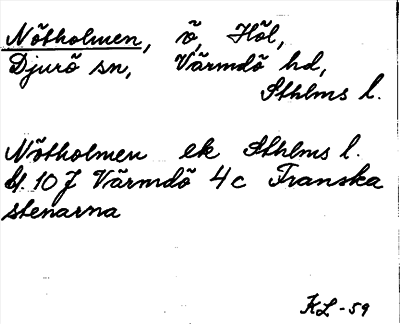 Nötholmen, ö, Höl,
Djurö sn, Värmdö hd,
Sthlms l.
Nötholmen ek Sthlms l.
bl. 10 J Värmdö 4 c Franska
stenarna
KL -59